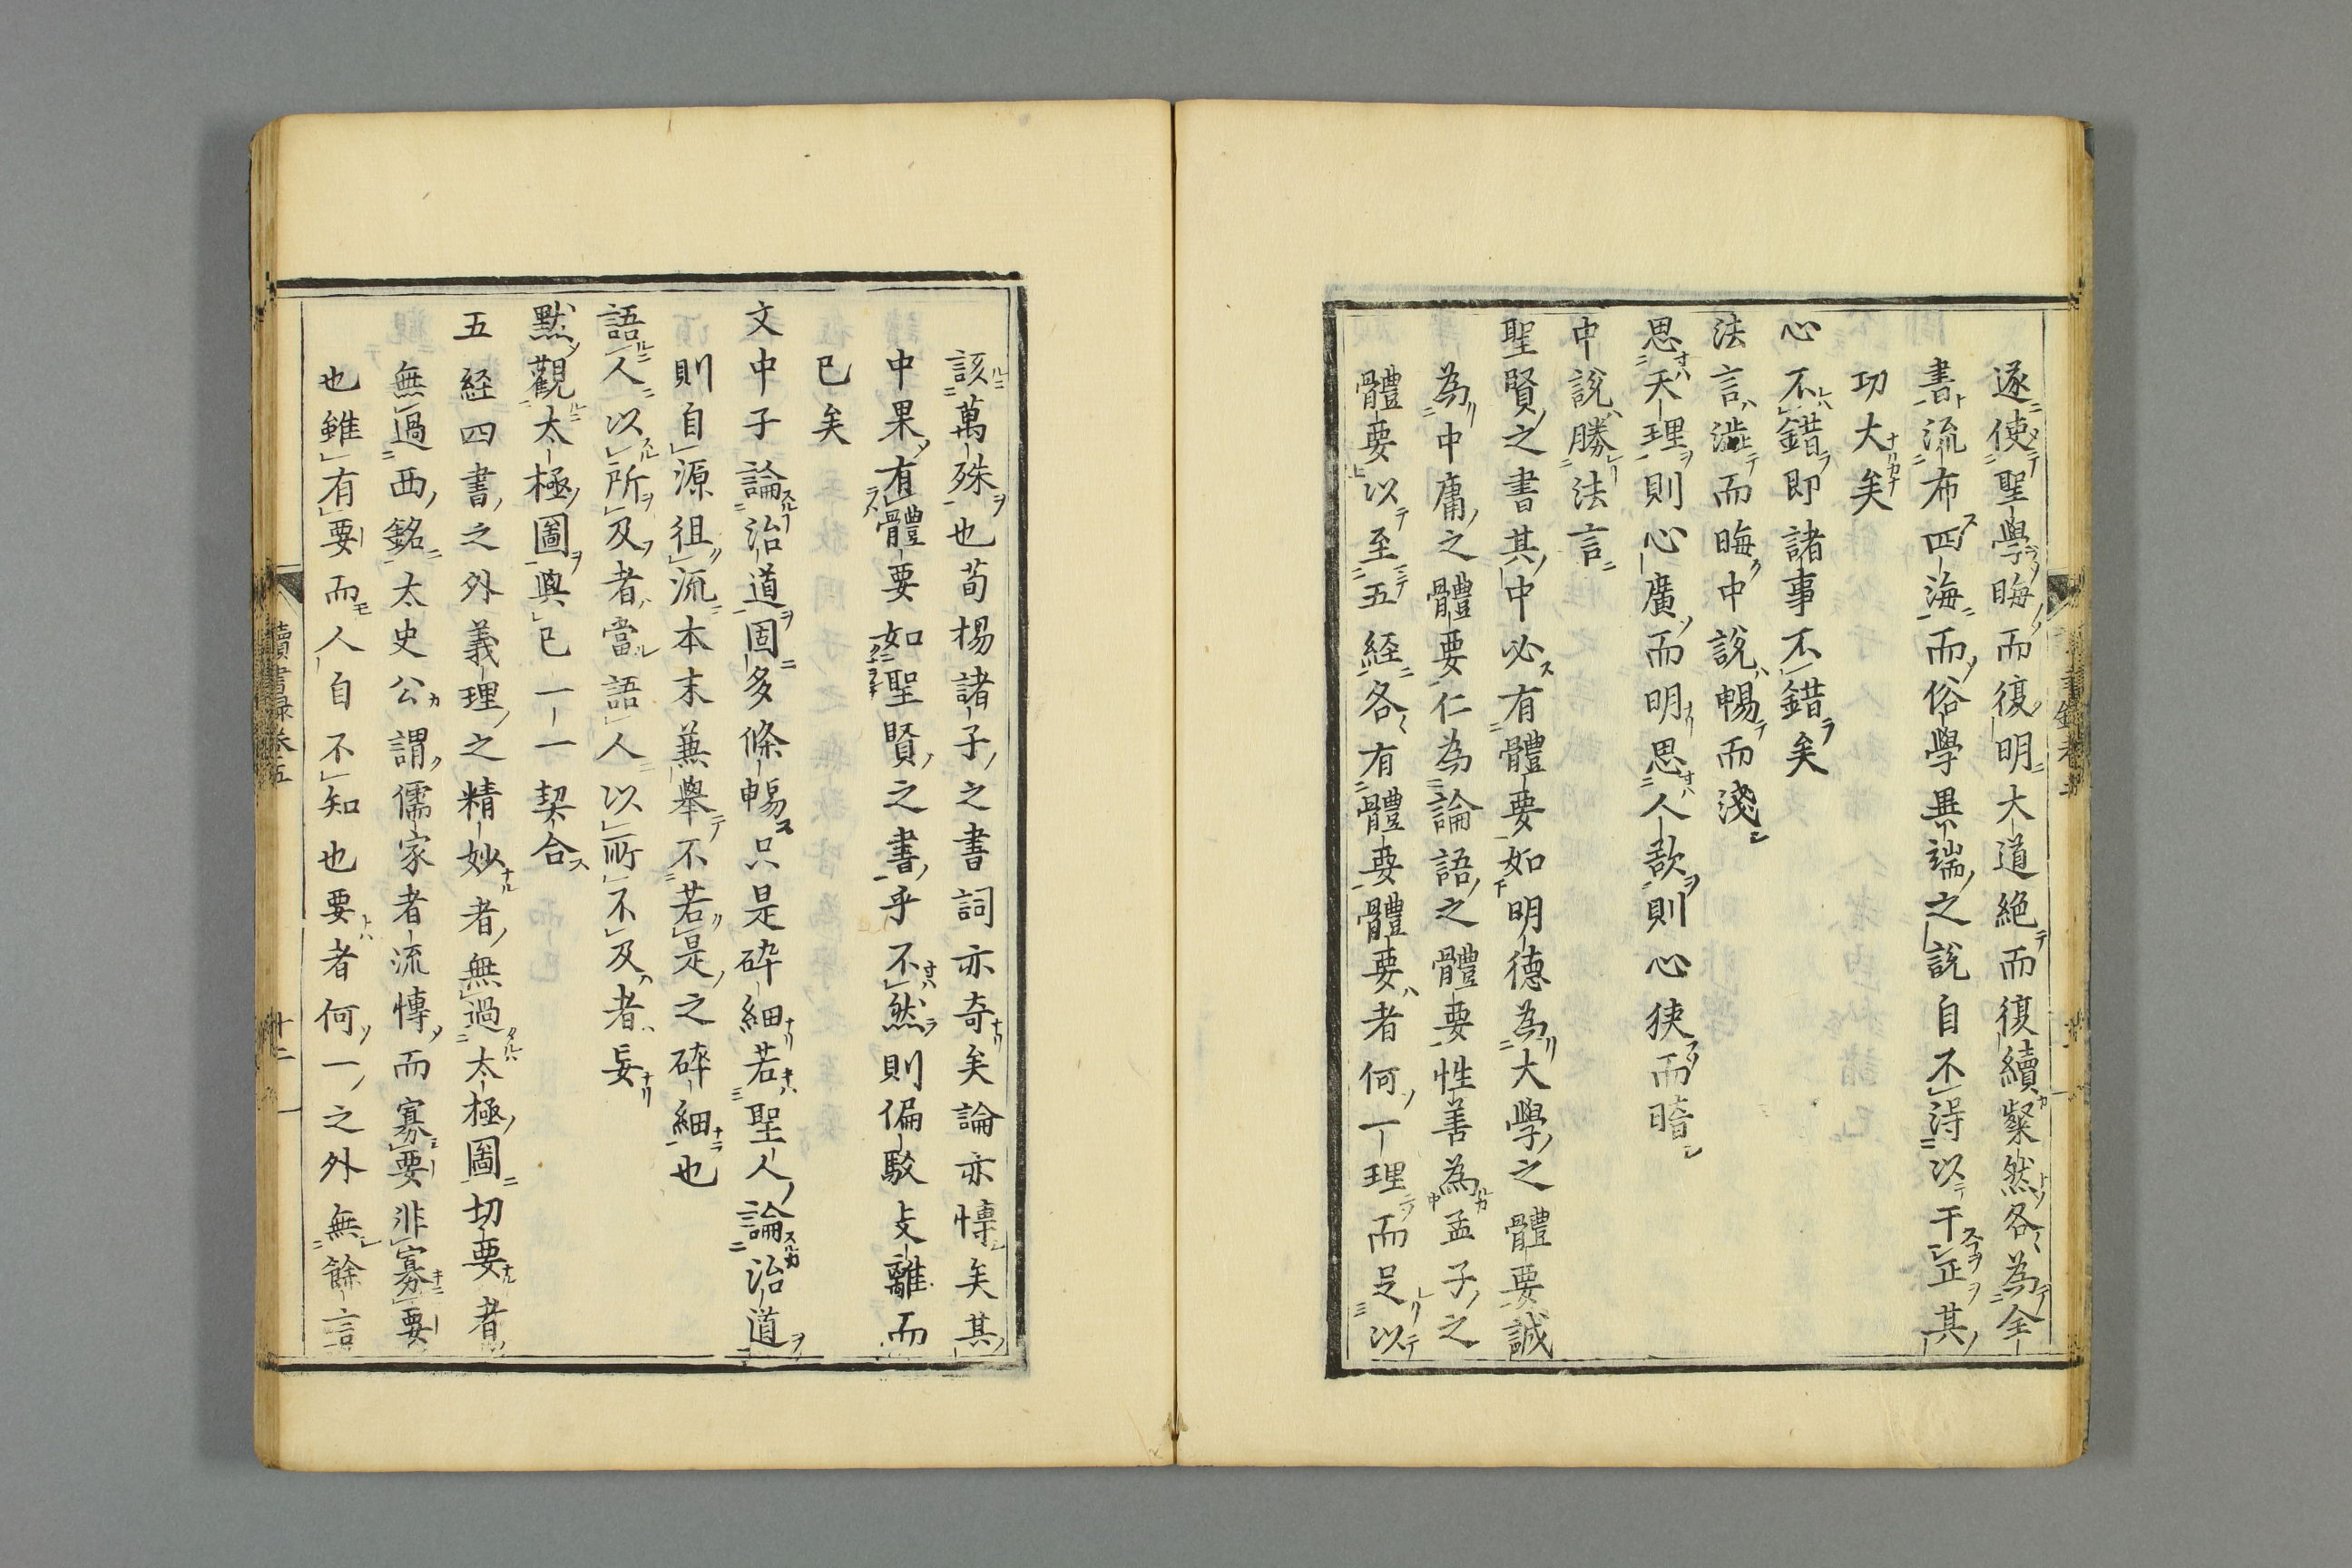 遂使聖學晦而復明大道絶而復續粲然各為全
書流布四海而俗學異端之說自不得以干正其
功大矣
心不錯即諸事不錯矣
法言澁而晦中說暢而淺
思天理則心廣而明思人欲則心狹而暗
中說勝法言
聖賢之書其中必有體要如明德為大學之體要誠
為中庸之體要仁為論語之體要性善為孟子之
體要以至五経各有體要體要者何一理而足以
該萬殊也荀楊諸子之書詞亦奇矣論亦慱矣其
中果有體要如聖賢之書乎不然則偏駁支離而
已矣
文中子論治道固多條暢只是碎細若聖人論治道
則自源徂流本末兼舉不若是之碎細也
語人以所及者當語人以所不及者妄
默觀太極圖與已一一契合
五経四書之外義理之精妙者無過太極圖切要者
無過西銘太史公謂儒家者流慱而寡要非寡要
也雖有要而人自不知也要者何一之外無餘言
讀書録卷五
十二